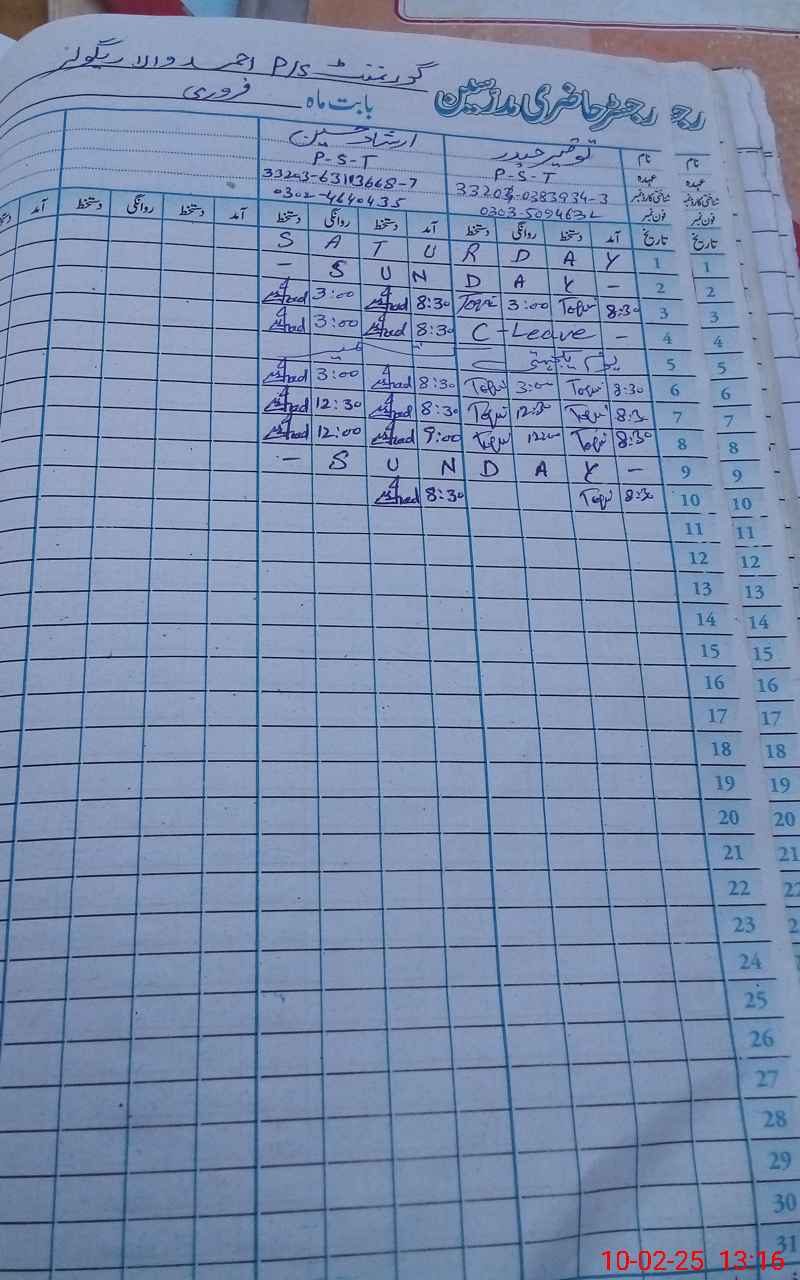 گورنمنٹ P/S احمد والا ریگولر
رجسٹر حاضری مدرسین بابت ماہ فروری
نام توقیر حیدر ارشاد حسین
عہدہ P-S-T P-S-T
شناختی کارڈ نمبر 33203-0383934-3 33203-6313668-7
فون نمبر 0303-5094632 0302-4640435
تاریخ آمد دستخط روانگی دستخط آمد دستخط روانگی دستخط آمد دستخط روانگی دستخط آمد
1 S A T U R D A Y
2 - S U N D A Y -
3 8:30 Toqir 3:00 Toqir 8:30 Irshad 3:00 Irshad
4 - C-Leave 8:30 Irshad 3:00 Irshad
5 یوم یکجہتی
6 8:30 Toqir 3:00 Toqir 8:30 Irshad 3:00 Irshad
7 8:30 Toqir 12:30 Toqir 8:30 Irshad 12:30 Irshad
8 8:30 Toqir 12:00 Toqir 9:00 Irshad 12:00 Irshad
9 - S U N D A Y -
10 8:30 Toqir 8:30 Irshad
11
12
13
14
15
16
17
18
19
20
21
22
23
24
25
26
27
28
29
30
31
10-02-25 13:16